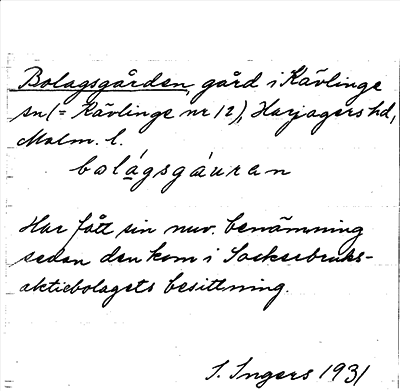 Bolagsgården, gård i Kävlinge
sn (= Kävlinge nr 12), Harjagers hd,
Malm. l.
bolágsgáuran
Har fått sin nuv. benämning
sedan den kom i Sockerbruks-
aktiebolagets besittning.
I. Ingers 1931